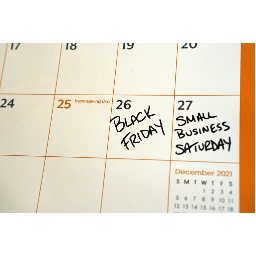 17 18 19 20
24 25 Thanksgiving Day 26 27
BLACK
FRIDAY
SMALL
BUSINESS
SATURDAY
December 2021
S M T W T F S
1 2 3 4
5 6 7 8 9 10 11
12 13 14 15 16 17 18